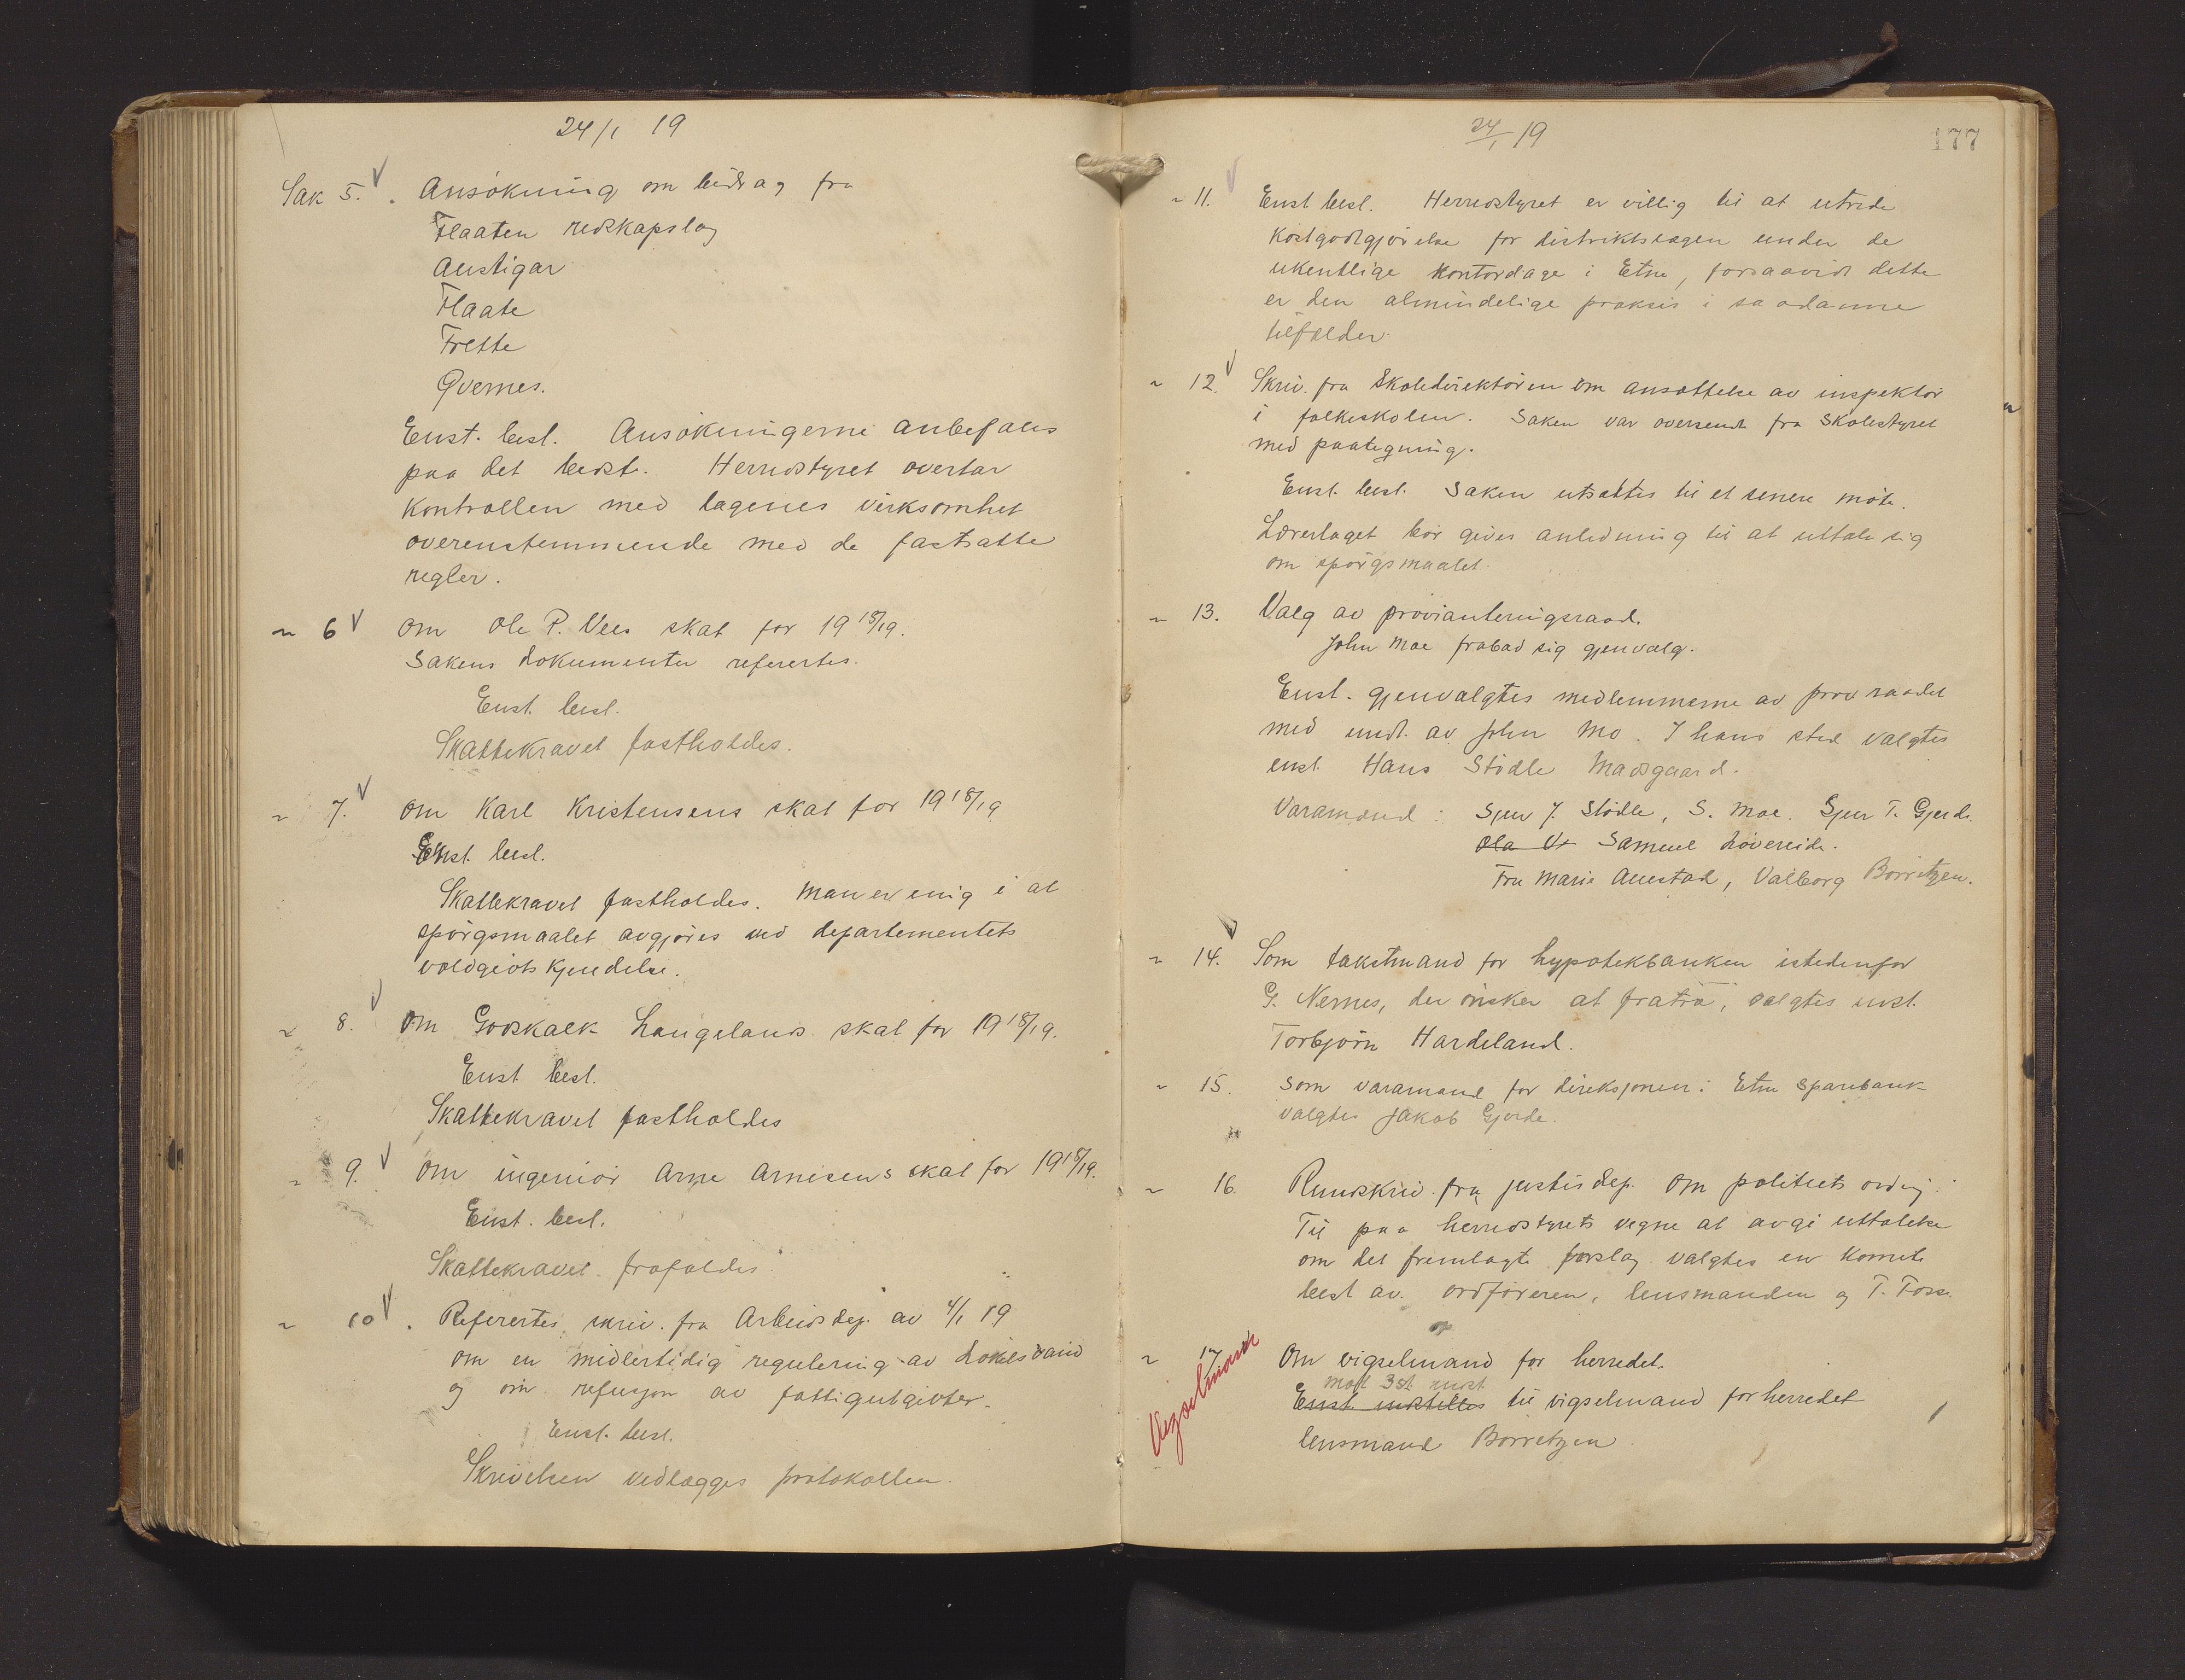 24/1 19
Sak 5. Ansökning om bidrag fra
Flaaten redskapslag
Austigar
Flaate
Frette
Qvernes.
Enst. besl. Ansökningerne anbefales
paa det bedste. Herredstyret overtar
Kontrollen med lagenes virksomhet
overenstemmende med de fastsatte
regler.
" 6 Om Ole P. Vees skat for 1918/19.
Sakens dokumenter refertes.
Enst. besl.
Skattekravet fastholdes.
" 7. Om Karl Kristensens skat for 1918/19
Enst. besl.
Skattekravet fastholdes. Man er enig i at
spörgsmaalet avgjöres ved departementets
voldgivts kjendelse.
" 8. Om Godskalk Langelands skat for 1918/19.
Enst besl.
Skattekravet fastholdes
" 9. Om ingeniör Arne Arnesens skat for 1918/19.
Enst. besl.
Skattekravet frafaldes.
" 10. Refertes skriv. fra Arbeidsdep. av 4/1 19
om en midlertidig regulering av Lökelsvand
og om refusjon av fattigutgivter.
Enst. besl.
Skrivelsen vedlægges protokollen.
24/1 19
177
" 11. Enst besl. Herredstyret er villig til at utrede
Kostgodtgjörelse for distriktslægen under de
ukentlige kontordage i Etne, forsaavidt dette
er den almindelige praksis i saadanne
tilfælder.
" 12. Skriv. fra Skoledirektören om ansættelse av inspektör
i folkeskolen. Saken var oversendt fra Skolestyret
med paategning.
Enst. besl. Saken utsættes til et senere möte.
Lærerlaget bör gives anledning til at uttale sig
om spörgsmaalet.
" 13. Valg av provianteringsraad.
John Moe frabad sig gjenvalg.
Enst. gjenvalgtes medlemmerne av prov raadet
med undt. av John Mo. I hans sted valgtes
enst. Hans Stödle Madsgaard.
Varamænd: Sjur J. Stödle, S. Moe. Sjur T. Gjerde.
Ola Samuel Lövereide.
Fru Marie Auestad, Valborg Börretzen.
" 14. Som takstmand for hypotekbanken istedenfor
G. Nernes, der önsker at fratræ, valgtes enst.
Torbjörn Hardeland.
" 15. Som varamand for direksjonen i Etne sparebank
valgtes Jakob Gjerde.
" 16. Rundskriv. fra justisdep. om politiets ordning.
Til paa herredstyrets vegne at avgi uttalelse
om det fremlagte forslag valgtes en komite
best av. ordföreren, lensmanden og T. Fosse.
" 17 Om vigselmand for herredet.
Vigselmand
mot 3 st. indst
Enst indstilles til vigselmand for herredet
lensmand Börretzen